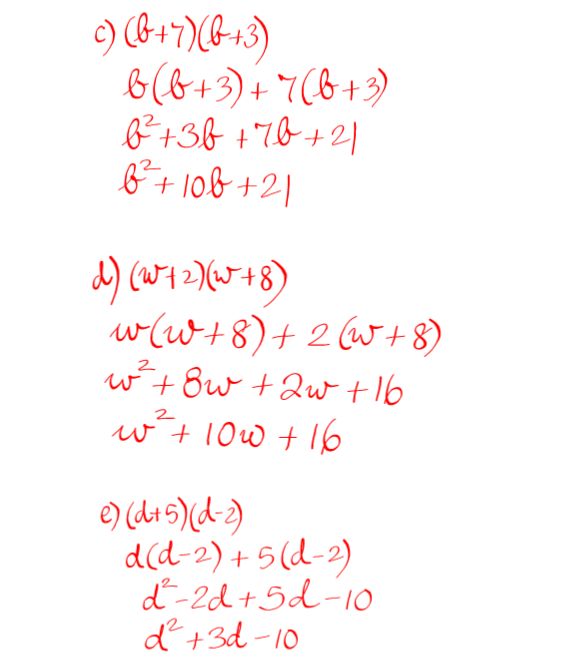 c) (b+7)(b+3)
b(b+3) + 7(b+3)
b²+3b+7b+21
b²+10b+21
d) (w+2)(w+8)
w(w+8) + 2(w+8)
w²+8w+2w+16
w²+10w+16
e) (d+5)(d-2)
d(d-2) + 5(d-2)
d²-2d+5d-10
d²+3d-10